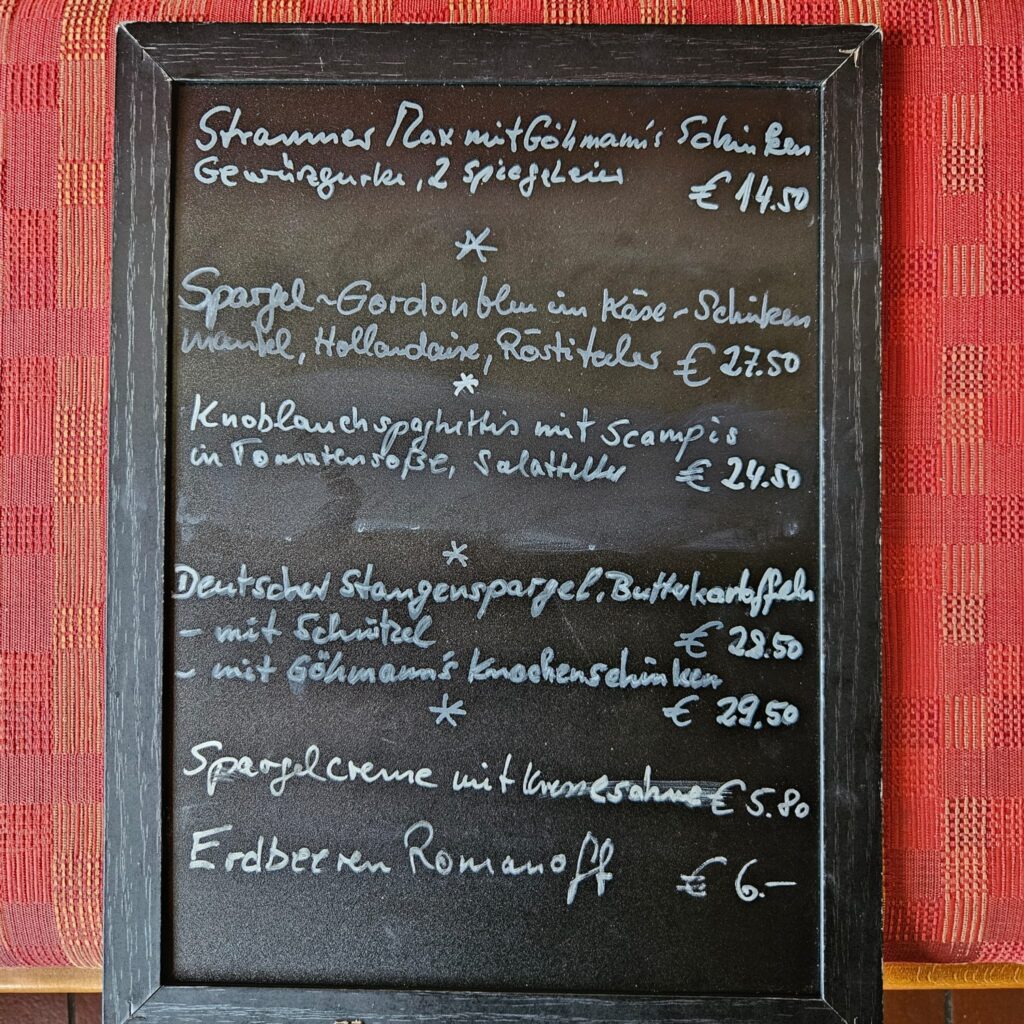 Strammer Max mit Göhmann's Schinken
Gewürzgurke, 2 Spiegeleier
€ 14.50
*
Spargel-Gordonbleu im Käse-Schinken
mantel, Hollandaise, Röstitaler € 27.50
*
Knoblauchspaghettis mit Scampis
in Tomatensoße, Salatteller € 24.50
*
Deutscher Stangenspargel, Butterkartoffeln
- mit Schnitzel € 28.50
- mit Göhmann's Knochenschinken
€ 29.50
*
Spargelcreme mit Kressesahne € 5.80
Erdbeeren Romanoff € 6.-